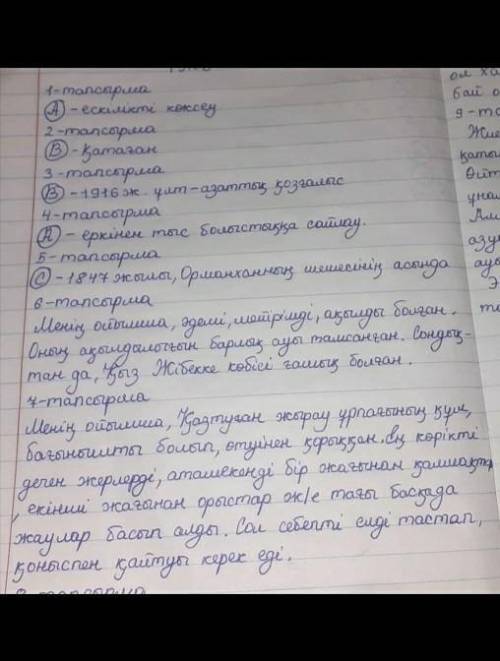 1-тапсырма
А - ескілікті көксеу
2-тапсырма
В - Қатаған
3-тапсырма
В - 1916 ж. ұлт-азаттық қозғалыс
4-тапсырма
А - еркінен тыс болыстыққа сайлау.
5-тапсырма
С - 1847 жылы, Орманханның шешесінің асында
6-тапсырма
Менің ойымша, әдемі, мейірімді, ақылды болған.
Оның ақылдалығын барлық ауыл Сондық-
тан да, Қыз Жібекке көбісі ғашық болған.
7-тапсырма
Менің ойымша, Қазтуған жырау ұрпағының құл,
бағынышты болып, өтуінен қорыққан. Ең көрікті
деген жерлерді, атамекенді бір жағынан қалмақтар
, екінші жағынан орыстар ж/е тағы басқада
жаулар басып алды. Сол себепті елді тастап,
қоныспен қайтуы керек еді.
тапсырма
ол ха
бай о
9-та
Жие
қаты
Өйт
ұна
Ал
азу
ауы
Э
ти